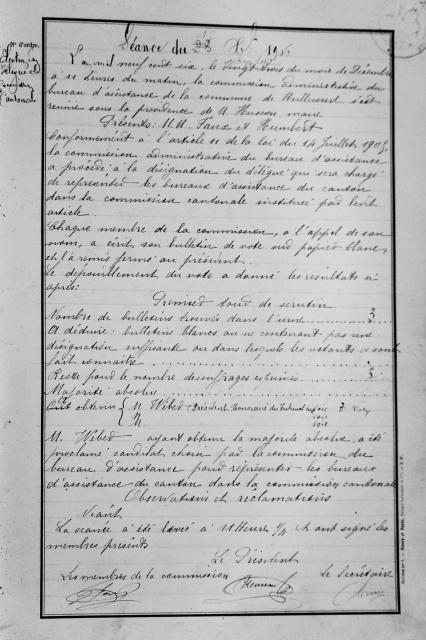 Séance du 23 1906
L'an mil neuf cent six, le Vingt trois du mois de Décembre
à 11 heures du matin, la commission administrative du
bureau d'assistance de la commune de s'est
réunie sous la présidence de M. Husson, maire
Présents: M.M. Faux et Humbert
Conformément à l'article 11 de la loi du 14 Juillet 1905,
la commission administrative du bureau d'assistance
a procédé à la désignation du délégué qui sera chargé
de représenter les bureaux d'assistance du canton
dans la commission cantonale instituée par ledit
article.
Chaque membre de la commission, à l'appel de son
nom, a écrit son bulletin de vote sur papier blanc,
et l'a remis fermé au président.
Le dépouillement du vote a donné les résultats ci-
après:
Premier tour de scrutin
Nombre de bulletins trouvés dans l'urne 3
A déduire: bulletins blancs ou ne contenant pas une
désignation suffisante ou dans lesquels les votants se sont
fait connaître
Reste pour le nombre de suffrages exprimés 3
Majorité absolue
Ont obtenu M Weber Président Honoraire du Tribunal 3 voix
M
M. Weber ayant obtenu la majorité absolue, a été
proclamé candidat choisi par la commission du
bureau d'assistance pour représenter les bureaux
d'assistance du canton dans la commission cantonale
Observations et réclamations
Néant
La séance a été levée à 11 Heures 1/4 & ont signé les
membres présents
Le Président
Les membres de la commission
Le Secrétaire